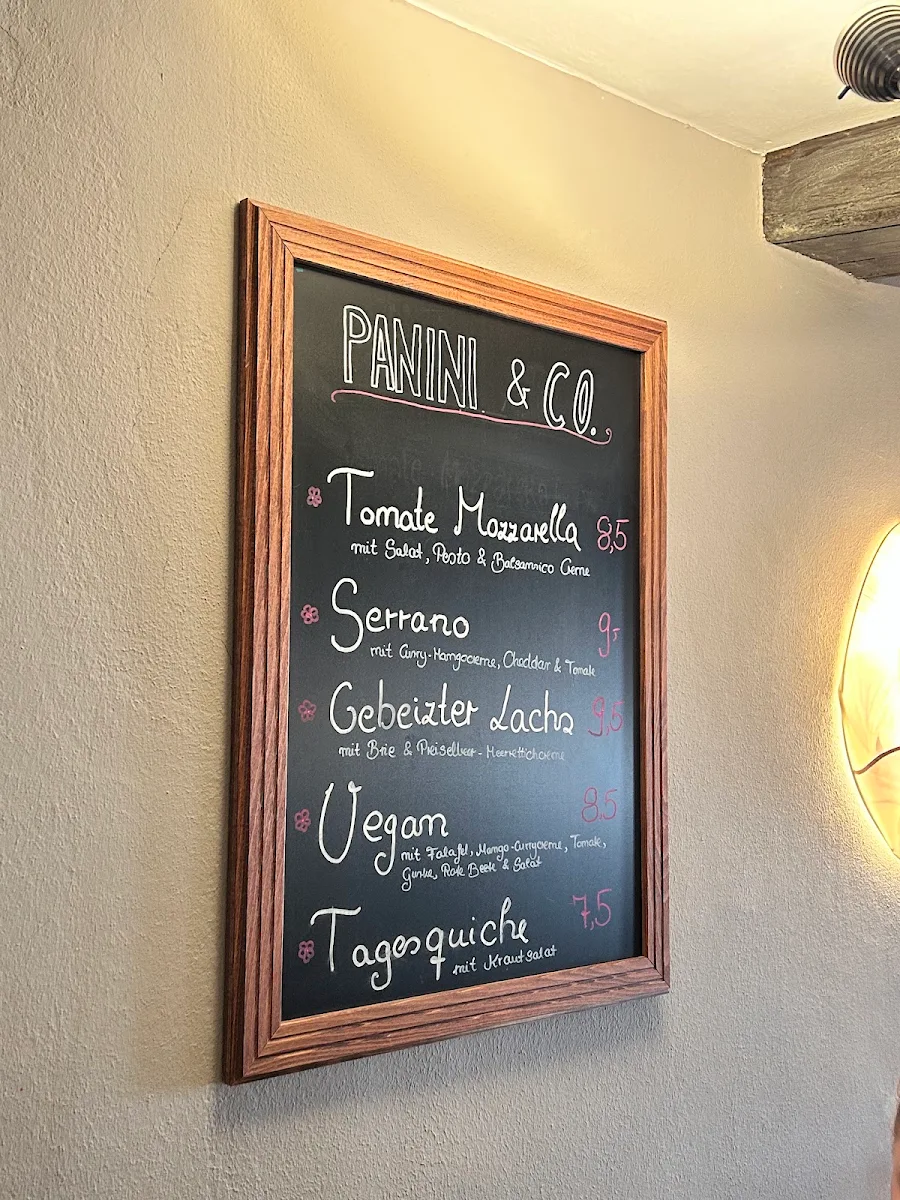 PANINI & CO.
Tomate Mozzarella 8,5
mit Salat, Pesto & Balsamico Creme
Serrano 9,-
mit Curry-Mangocreme, Cheddar & Tomate
Gebeizter Lachs 9,5
mit Brie & Preiselbeer-Meerrettichcreme
Vegan 8.5
mit Falafel, Mango-Currycreme, Tomate,
Gurke, Rote Beete & Salat
Tagesquiche 7,5
mit Krautsalat